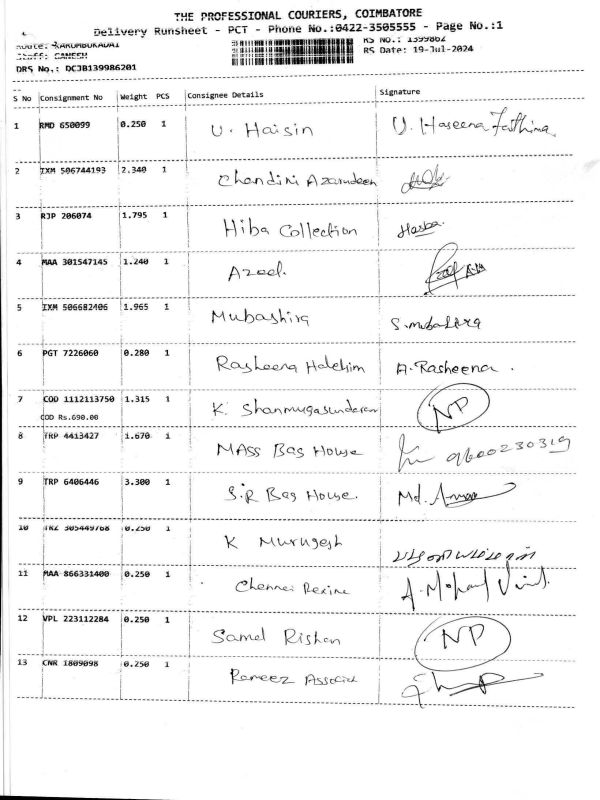 THE PROFESSIONAL COURIERS, COIMBATORE
Delivery Runsheet - PCT - Phone No.:0422-3505555 - Page No.:1
Route: KARUMBUKADAI RS No.: 1399862
Staff: GANESH RS Date: 19-Jul-2024
DRS No.: DCJB139986201
S No Consignment No Weight PCS Consignee Details Signature
1 RMD 650099 0.250 1 U. Haisin U. Haseena Fathima
2 IXM 506744193 2.340 1 Chandini Azarudeen
3 RJP 206074 1.795 1 Hiba Collection
4 MAA 301547145 1.240 1 Azeel.
5 IXM 506682406 1.965 1 Mubashira S.mubashira
6 PGT 7226060 0.280 1 Rasheena Halekim A. Rasheena.
7 COD 1112113750 1.315 1 K. Shanmugasundaram NP
COD Rs.690.00
8 TRP 4413427 1.670 1 MAss Bag House 9600230319
9 TRP 6406446 3.300 1 S.R Bag House. Md.
10 TRZ 305449768 0.250 1 K Murugesh
11 MAA 866331400 0.250 1 Chennai Rexine A. Mohand
12 VPL 223112284 0.250 1 Samel Rishan NP
13 CNR 1809098 0.250 1 Rameez Associate